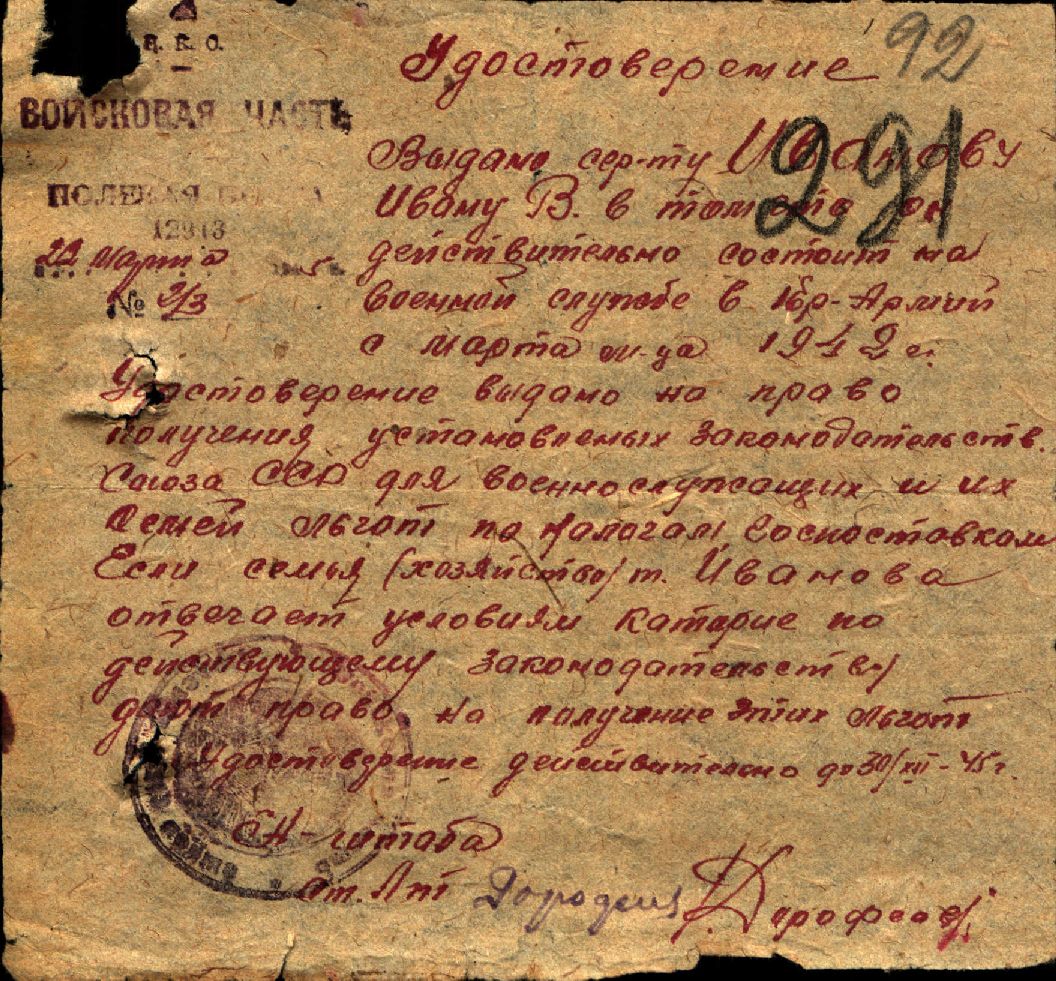 Удостоверение 92
ВОЙСКОВАЯ ЧАСТЬ
291
Выдано сер-ту Иванову
ПОЛЕВАЯ ПОЧТА
Ивану В. в том что он
действительно состоит на
22 марта
№ 2/3
военной службе в
с марта м-ца 1942 г.
Удостоверение выдано на право
получения установленых законодательств.
Союза ССР для военнослужащих и их
семей льгот по налогам Госпоставкам
Если семья (хозяйство) т. Иванова
отвечает условиям каторые по
действующему законодательству
дают право на получение этих льгот
Удостоверение действительно до 30/XII-45 г.
Н-штаба
Ст. Л-т